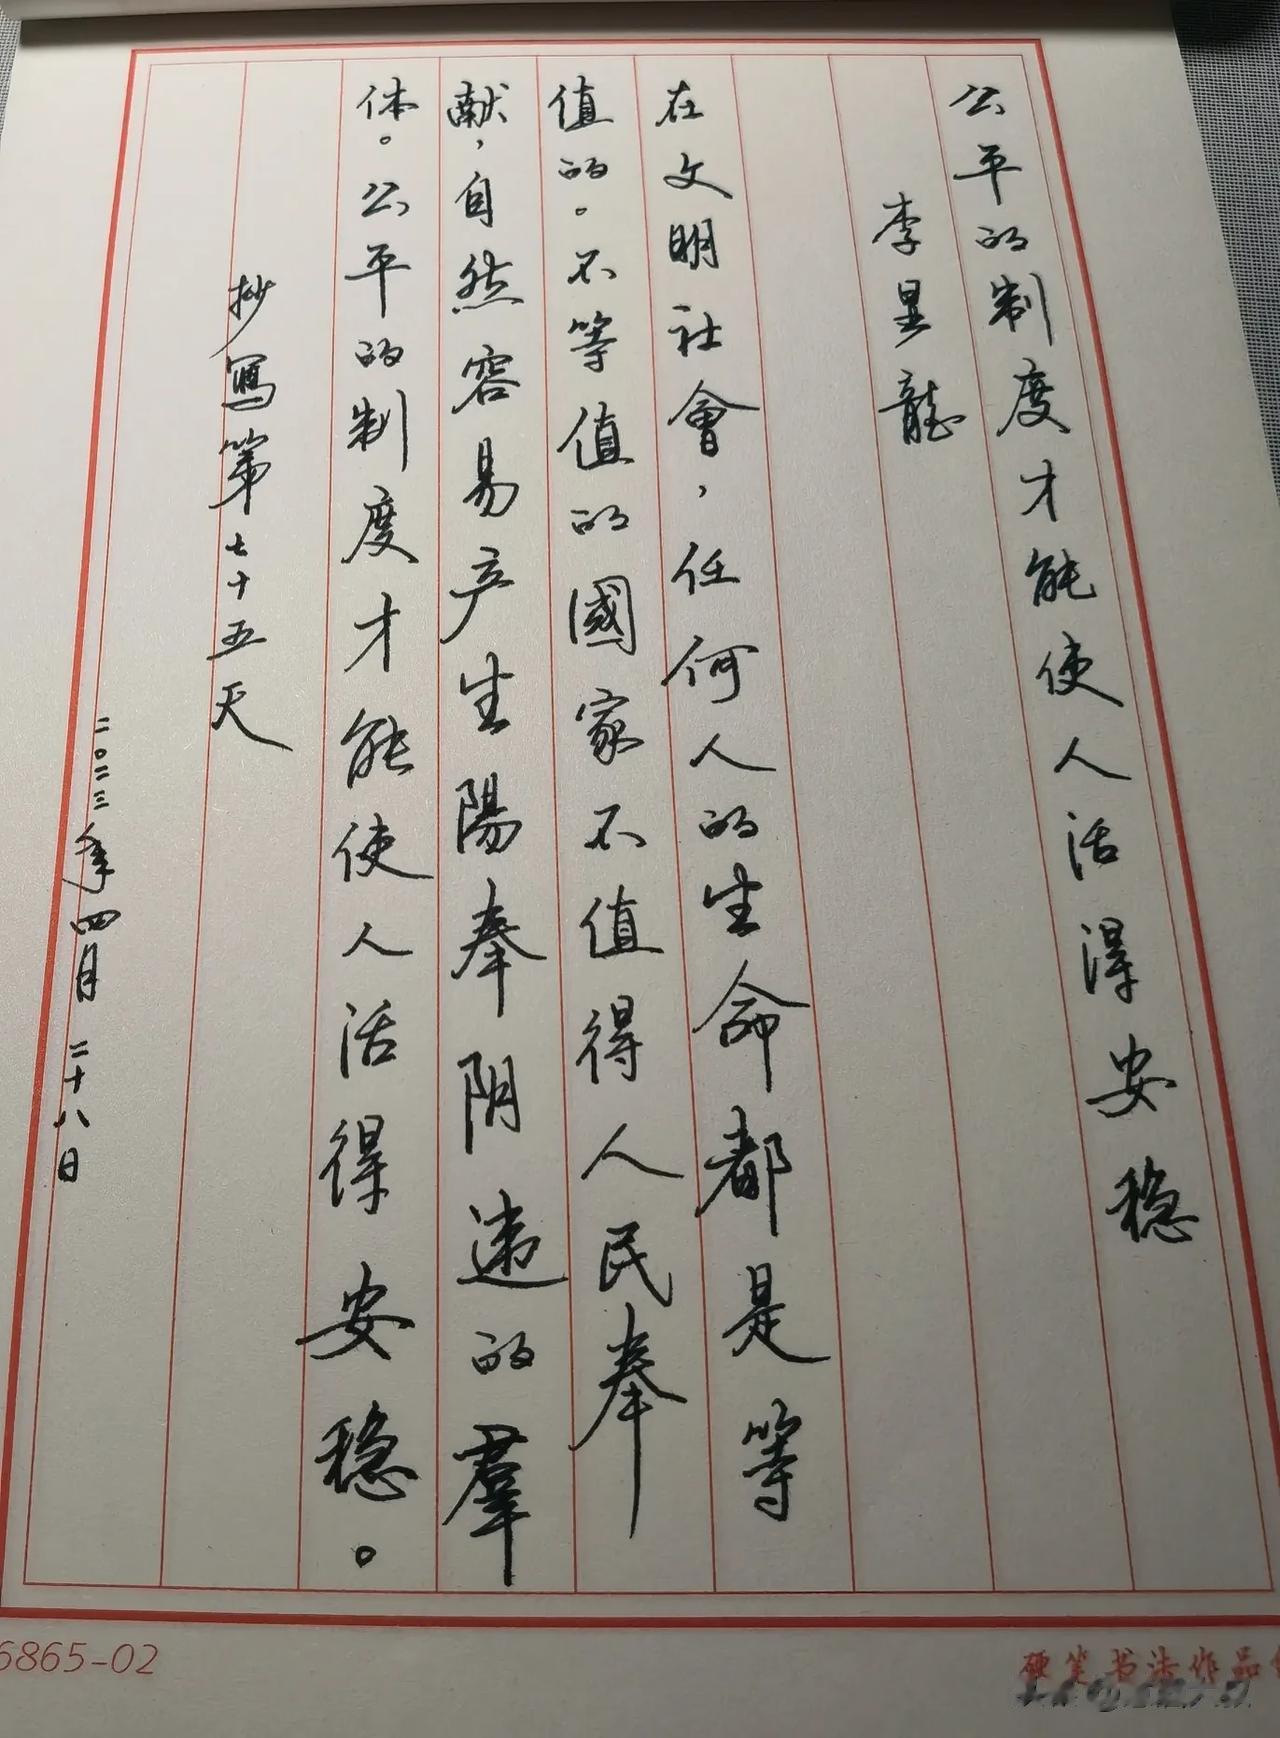 公平的制度才能使人活得安稳
李昱龍
在文明社會，任何人的生命都是等
值的。不等值的國家不值得人民奉
献，自然容易产生陽奉阴违的羣
体。公平的制度才能使人活得安稳。
抄寫第七十五天
二〇二三年四月二十八日
6865-02
硬笔书法作品